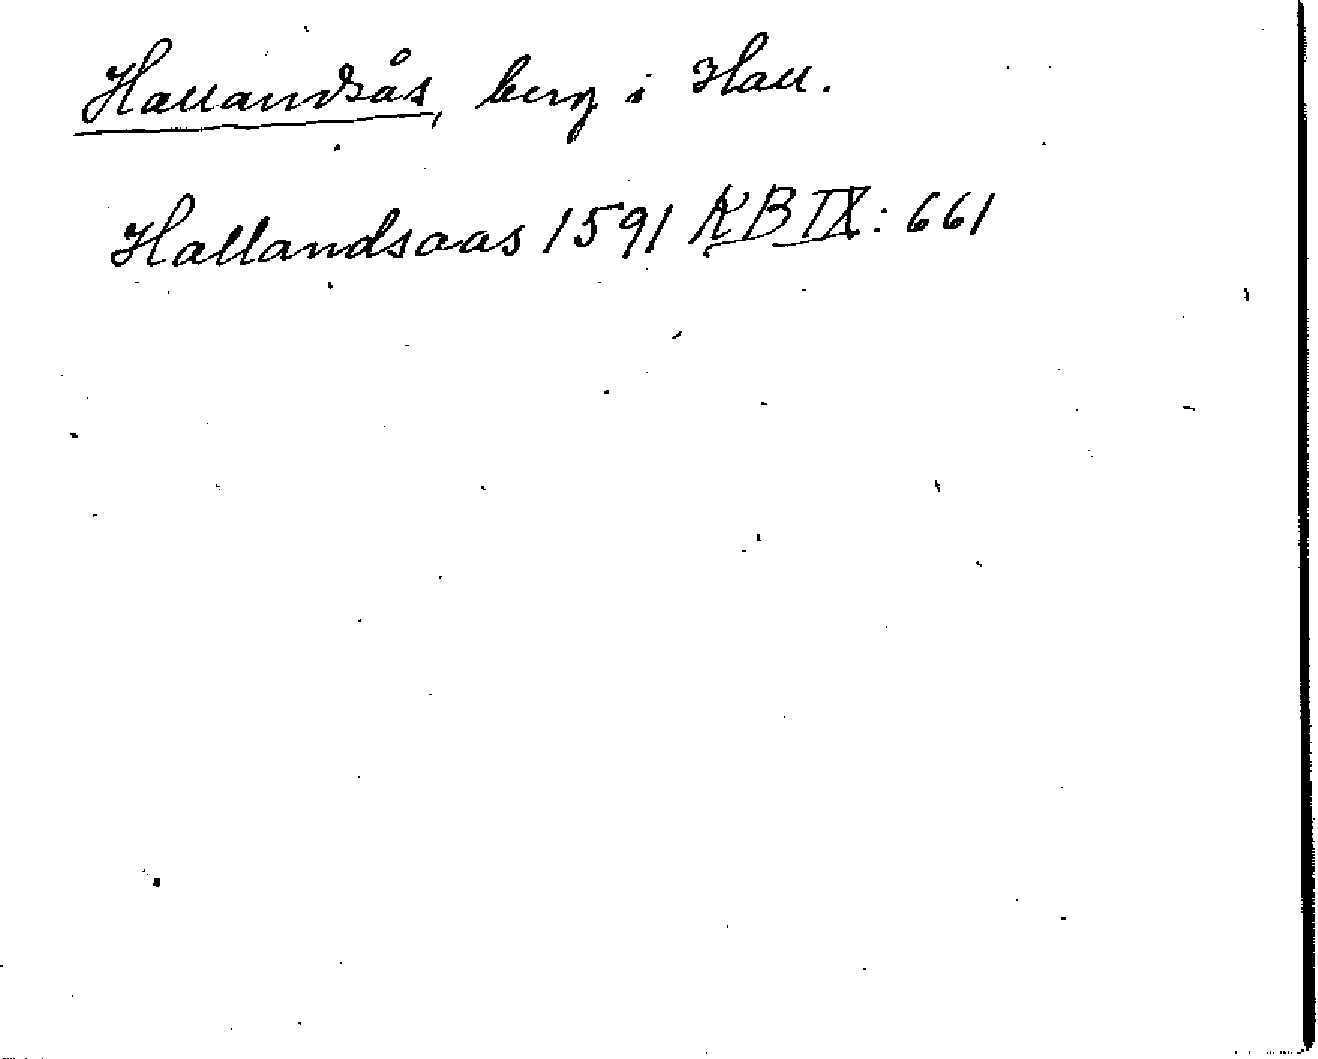 Hallandsås, berg i Hall.
Hallandsaas 1591 KB IX: 661